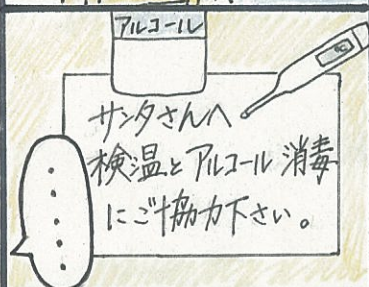 アルコール
サンタさんへ
検温とアルコール消毒
にご協力下さい。
・・・・